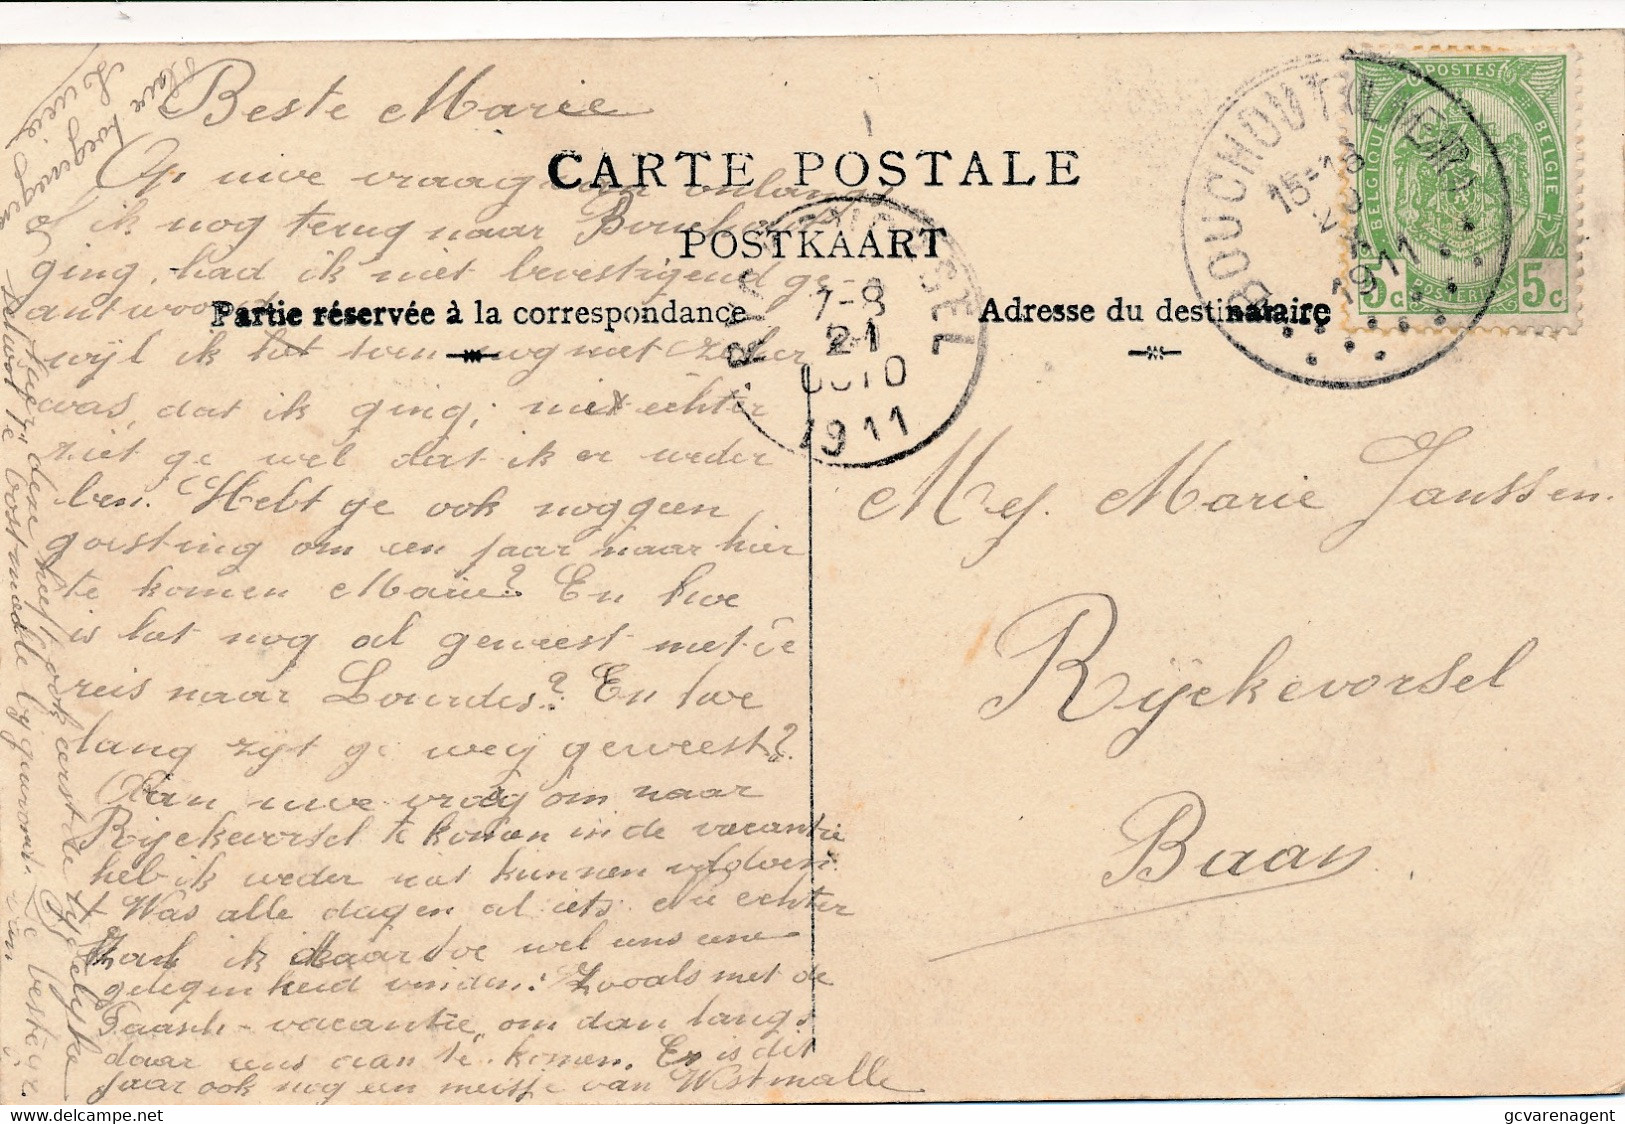 Beste Marie
CARTE POSTALE
POSTKAART
Partie réservée à la correspondance
Adresse du destinataire
Op uwe vraag onlangs
of ik nog terug naar Bouchout
ging, had ik niet bevestigend ge-
antwoord
wijl ik het toen nog niet zeker
was, dat ik ging; nu echter
ziet ge wel dat ik er weder
ben. Hebt ge ook nog geen
goesting om een jaar naar hier
te komen Marie? En hoe
is het nog al geweest met de
reis naar Lourdes? En hoe
lang zijt ge weg geweest?
Aan uwe vraag om naar
Rijckevorsel te komen in de vacantie
heb ik weder niet kunnen voldoen.
't Was alle dagen al iets. Nu echter
zal ik daartoe wel eens eene
gelegenheid vinden: Zooals met de
Paasch-vacantie, om dan langs
daar eens aan te komen. Er is dit
jaar ook nog een meisje van Westmalle
hier, den heeft ook eerst de tijdelijke
school te Oostmalle bijgewoond. De beste
van
Mej. Marie Janssen.
Rijckevorsel
Baan
BOUCHOUT (LIER)
15-18
1911
7-8
21
OCTO
1911
POSTES
BELGIQUE
BELGIE
POSTERIJEN
5c 5c
gcvarenagent